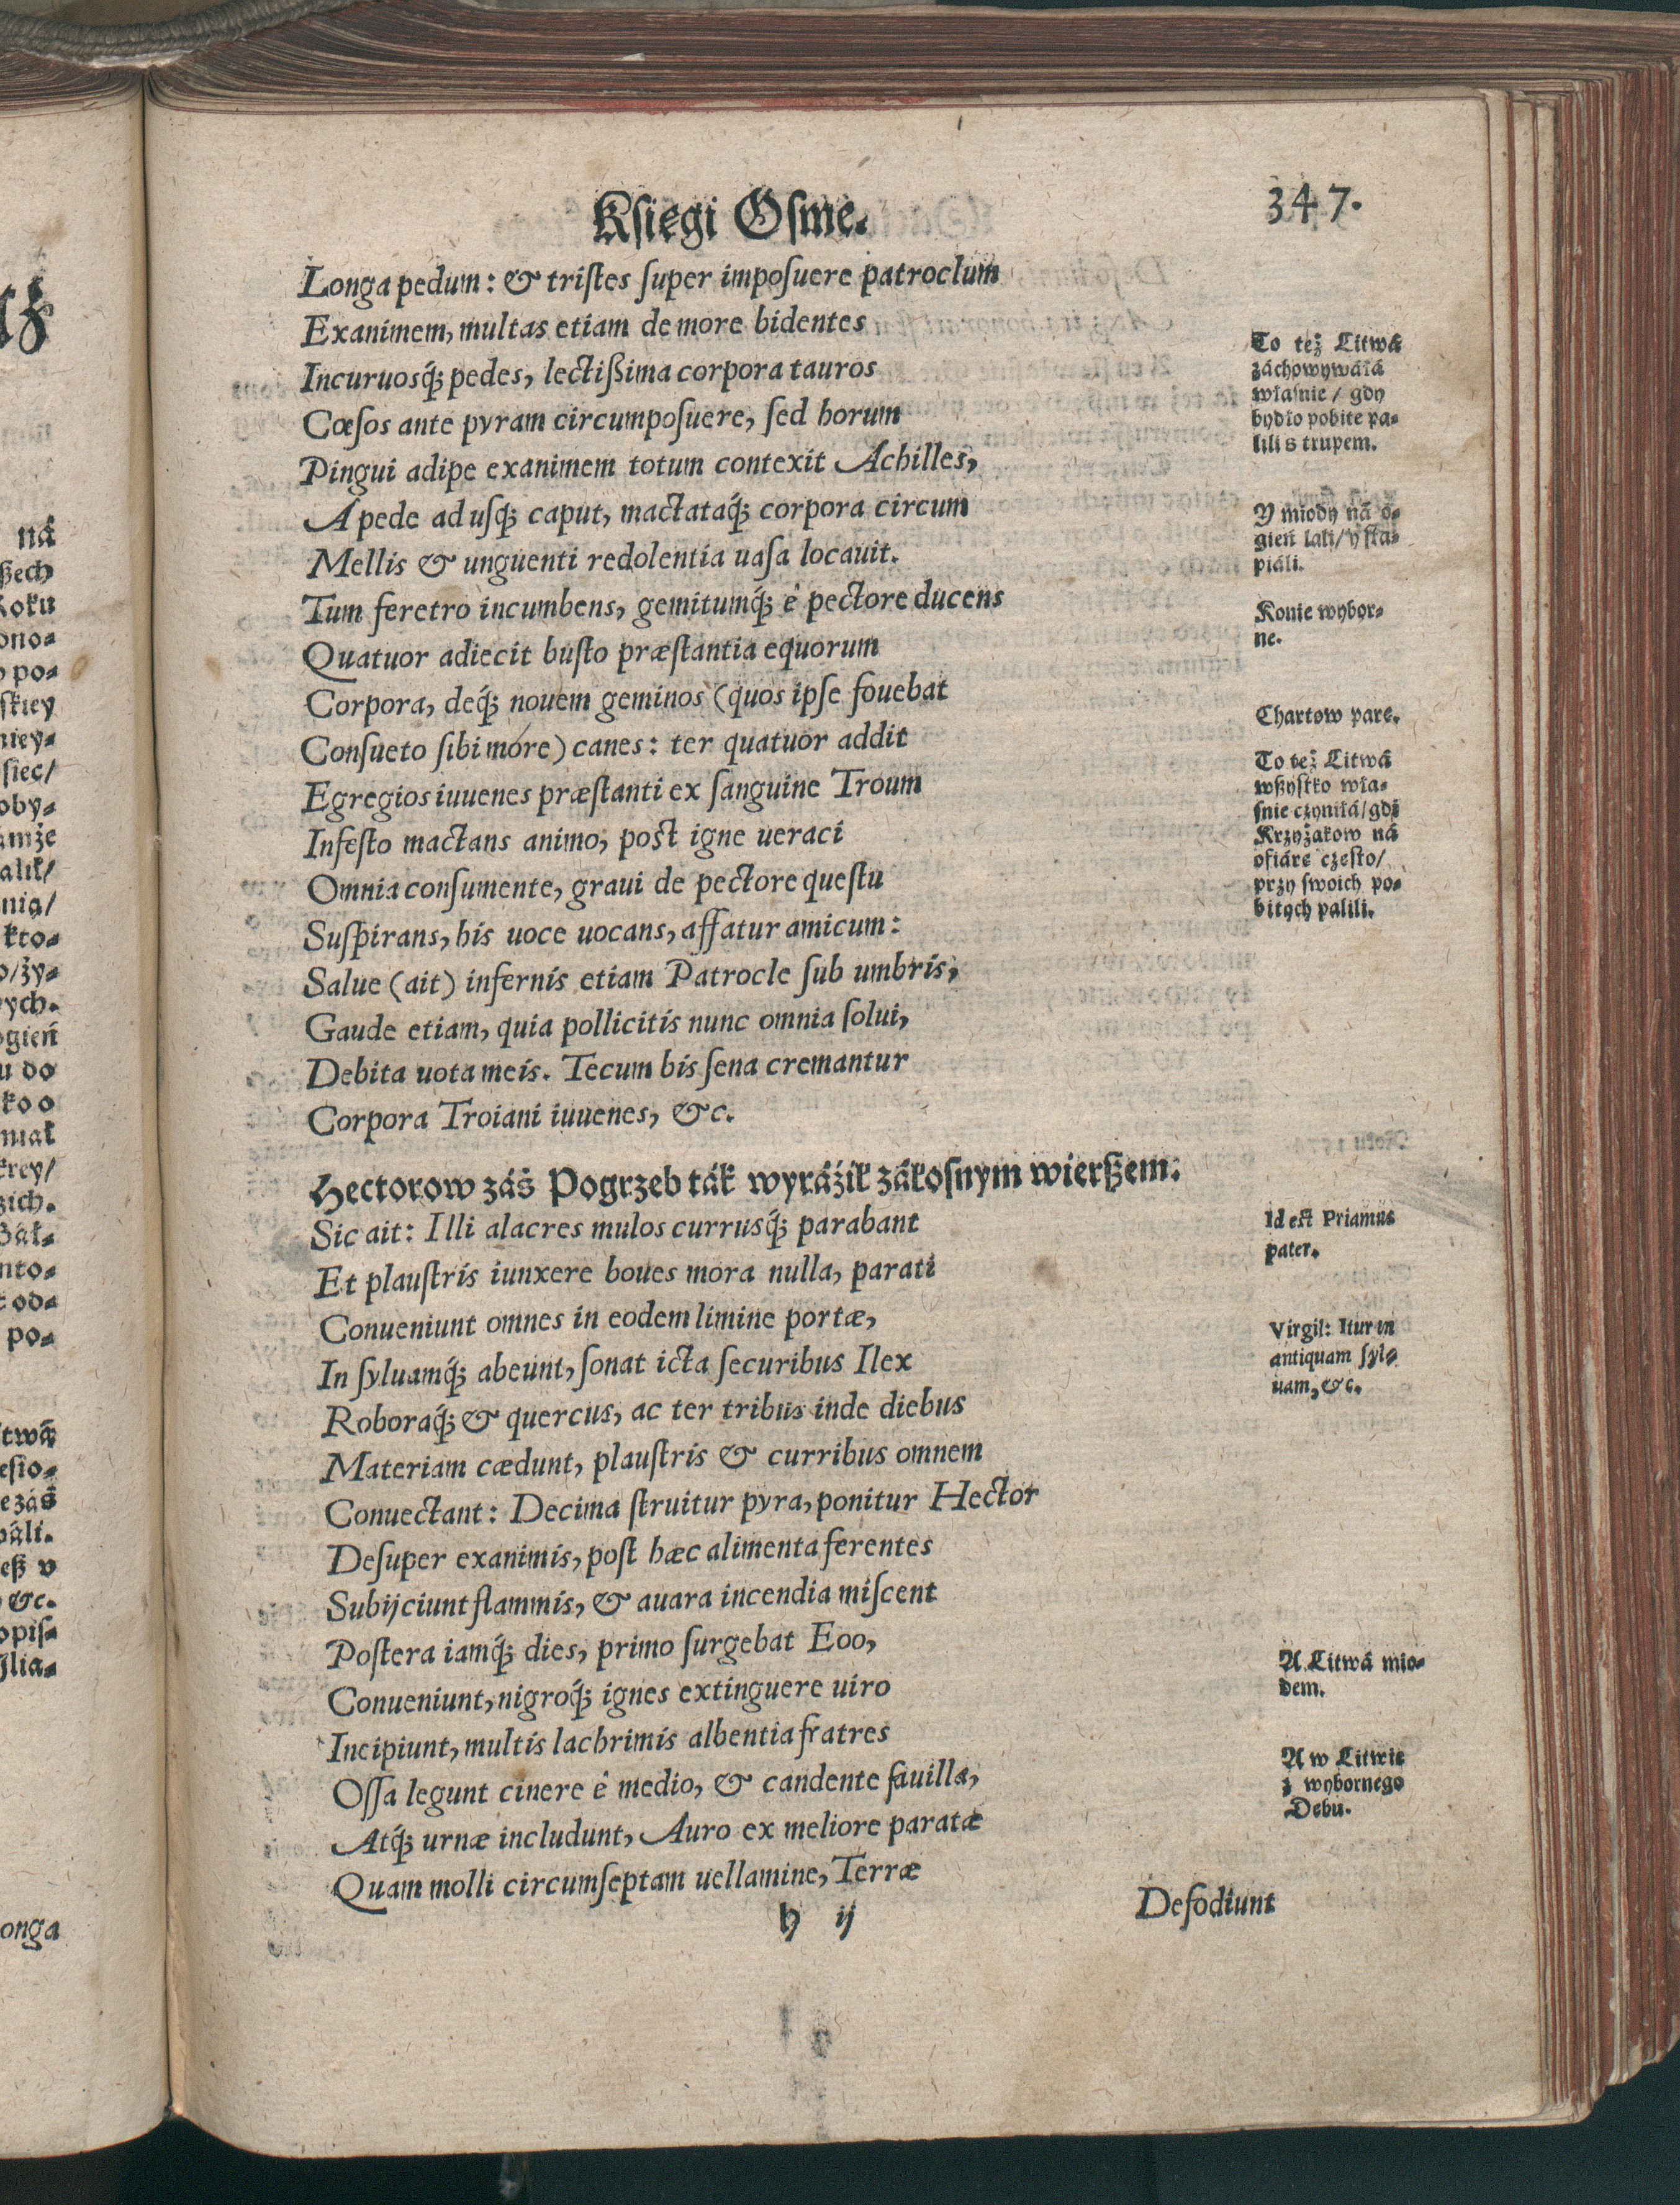 Ksiegi Osme.
347.
Longa pedum: & tristes super imposuere patroclum
Exanimem, multas etiam de more bidentes
Incuruosq́; pedes, lectißima corpora tauros
Cœsos ante pyram circumposuere, sed horum
Pingui adipe exanimem totum contexit Achilles,
A pede ad usq́; caput, mactataq́; corpora circum
Mellis & unguenti redolentia uasa locauit.
Tum feretro incumbens, gemitumq́; è pectore ducens
Quatuor adiecit busto præstantia equorum
Corpora, deq́; nouem geminos (quos ipse fouebat
Consueto sibi more) canes: ter quatuor addit
Egregios iuuenes præstanti ex sanguine Troum
Infesto mactans animo, post igne ueraci
Omnia consumente, graui de pectore questu
Suspirans, his uoce uocans, affatur amicum:
Salue (ait) infernis etiam Patrocle sub umbris,
Gaude etiam, quia pollicitis nunc omnia solui,
Debita uota meis. Tecum bis sena cremantur
Corpora Troiani iuuenes, &c.
Hectorow záś Pogrzeb ták wyráźił zákosnym wierßem.
Sic ait: Illi alacres mulos currusq́; parabant
Et plaustris iunxere boues mora nulla, parati
Conueniunt omnes in eodem limine portæ,
In syluamq́; abeunt, sonat icta securibus Ilex
Roboraq́; & quercus, ac ter tribus inde diebus
Materiam cædunt, plaustris & curribus omnem
Conuectant: Decima struitur pyra, ponitur Hector
Desuper exanimis, post hæc alimenta ferentes
Subijciunt flammis, & auara incendia miscent
Postera iamq́; dies, primo surgebat Eoo,
Conueniunt, nigroq́; ignes extinguere uiro
Incipiunt, multis lachrimis albentia fratres
Ossa legunt cinere è medio, & candente fauilla,
Atq́; urnæ includunt, Auro ex meliore paratæ
Quam molli circumseptam uellamine, Terræ
h ij
Defodiunt
To też Litwá
záchowywáłá
własnie / gdy
bydło pobite pa-
lili s trupem.
Y miody ná o-
gień lali/ y ska-
piáli.
Konie wybor-
ne.
Chartow pare.
To też Litwá
wßystko wła-
snie czyniłá/ gdi
Krzyżakow ná
ofiáre czesto/
przy swoich po-
bitych palili.
Id est Priamus
pater.
Virgil: Itur in
antiquam syl-
uam, &c.
A Litwá mio-
dem.
A w Litwie
z wybornego
Debu.
ná
ßech
Roku
ono-
po-
skiey
niey-
siec/
oby-
amże
alik/
nią/
kto-
o/ży-
ych.
ogień
u do
ko o
niak
krey/
zich.
Zák-
nto-
t od-
po-
itwá
esio-
e záś
páli.
eß v
&c.
opis-
Ilia-
onga